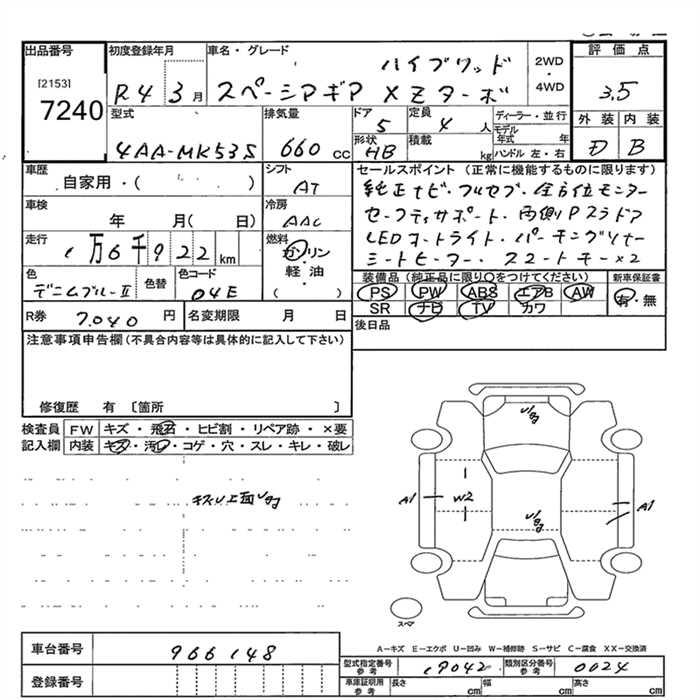 出品番号 初度登録年月 車名・グレード 評価点
[2153] 7240 R4 3月 スペーシアギア ハイブリッド XZターボ 2WD ・ 4WD 3.5
型式 排気量 ドア 定員 ディーラー・並行 外装 内装
4AA-MK53S 660 cc 5 4 人 モデル年式 年 D B
形状 積載
HB kg ハンドル 左・右
車歴 シフト セールスポイント (正常に機能するものに限ります)
自家用・( ) AT 純正ナビ・フルセブ・全方位モニター
車検 冷房 セーフティサポート・両側Pスラドア
年 月( 日) AAC LEDオートライト・パーキングソナー
走行 燃料 シートヒーター・スマートキー×2
1万6千922km ガソリン
軽・油
( )
色 色替 色コード 装備品(純正品に限り○をつけてください) 新車保証書
デニムブルーII 04E PS PW ABS エアB AW 有・無
SR ナビ TV カワ
R券 7.040 円 名変期限 月 日 後日品
注意事項申告欄(不具合内容等は具体的に記入して下さい)
修復歴 有 〔箇所 〕
検査員 FW キズ・飛石・ヒビ割・リペア跡・×要
記入欄 内装 キズ・汚レ・コゲ・穴・スレ・キレ・破レ
A1 W2 A1
スペア
A-キズ E-エクボ U-凹み W-補修跡 S-サビ C-腐食 XX-交換済
車台番号 966148
登録番号
型式指定番号 参考 19042 類別区分番号 参考 0024
車庫証明用 参考 長さ cm 幅 cm 高さ cm